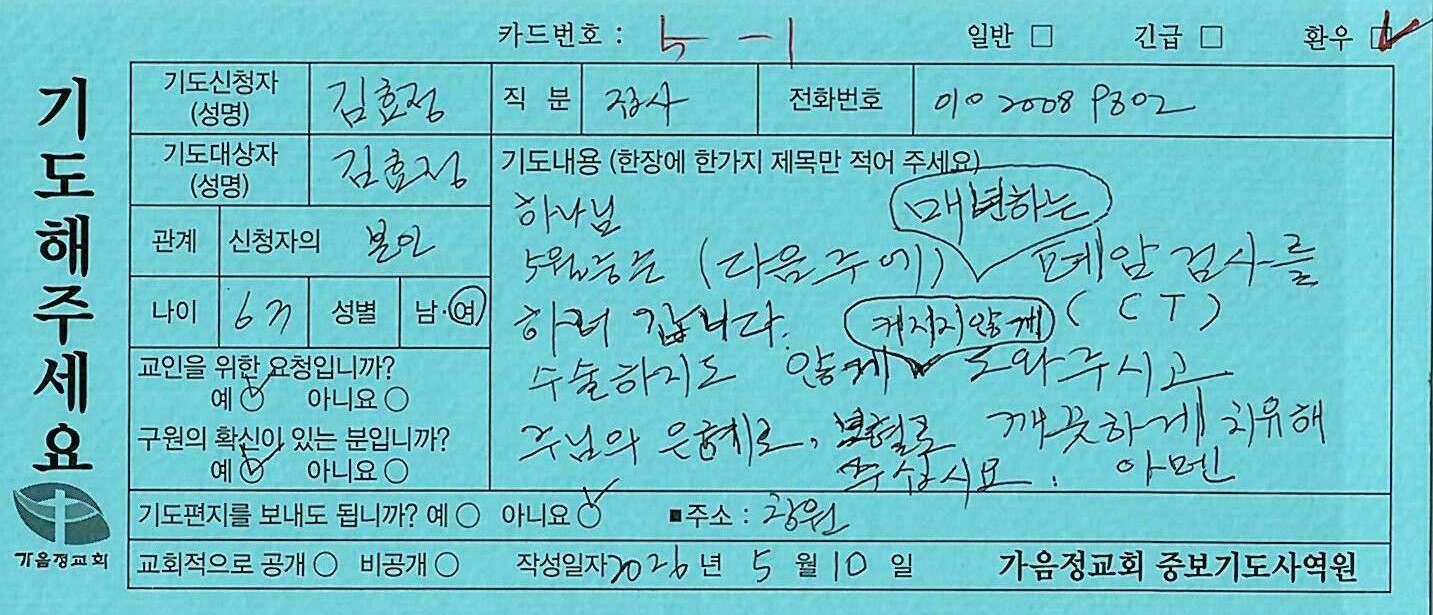 카드번호 : 5-1 일반 □ 긴급 □ 환우 ☑
기도해주세요
기도신청자 (성명) 김효정 직 분 집사 전화번호 010 2008 9802
기도대상자 (성명) 김효정
기도내용 (한장에 한가지 제목만 적어 주세요)
관계 신청자의 본인
나이 67 성별 남·여
교인을 위한 요청입니까?
예 ○ 아니요 ○
구원의 확신이 있는 분입니까?
예 ○ 아니요 ○
하나님
5월중순 (다음주에) 매년하는 폐암 검사를
하러 갑니다. (CT)
수술하지도 않게 커지지않게 도와주시고
주님의 은혜로, 보혈로 깨끗하게 치유해
주십시요. 아멘
기도편지를 보내도 됩니까? 예 ○ 아니요 ○ ■주소 : 창원
교회적으로 공개 ○ 비공개 ○ 작성일자 2026 년 5 월 10 일 가음정교회 중보기도사역원
가음정교회